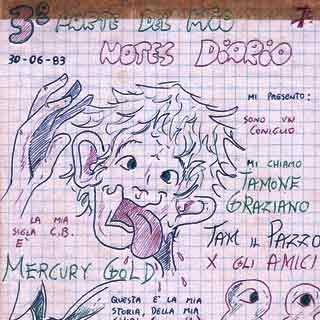 3ª PARTE DEL MIO
NOTES DIARIO
30-06-83
MI PRESENTO:
SONO UN
CONIGLIO
MI CHIAMO
TAMONE
GRAZIANO
TAM IL PAZZO
X GLI AMICI
LA MIA
SIGLA C.B.
È
MERCURY GOLD
QUESTA È LA MIA
STORIA, DELLA MIA